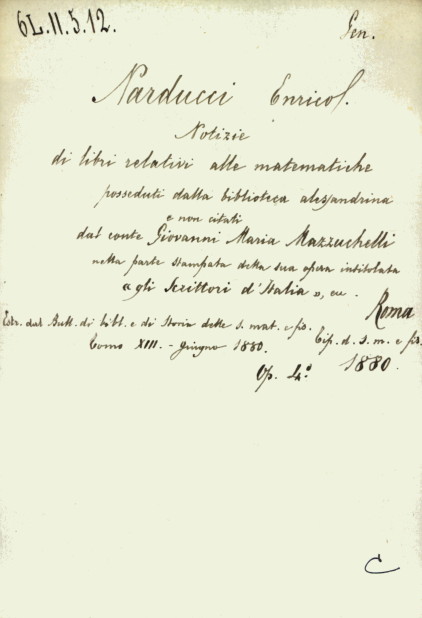 6L.II.5.12.
Gen.
Narducci Enrico.
Notizie
di libri relativi alle matematiche
posseduti dalla biblioteca alessandrina
e non citati
dal conte Giovanni Maria Mazzuchelli
nella parte stampata della sua opera intitolata
"gli Scrittori d'Italia", ecc.
Roma
Estr. dal Bull. di bibl. e di Storia delle s. mat. e fis.
Tip. d. s. m. e fis.
Tomo XIII. - Giugno 1880.
1880.
Op. 4º
C